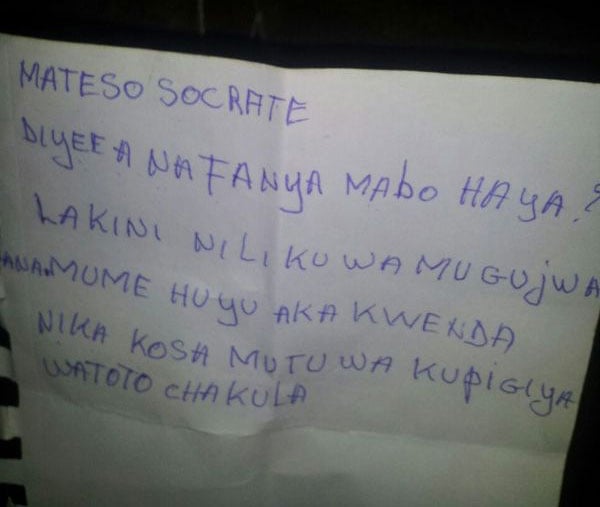 MATESO SOCRATE
DIYEE A NAFANYA MAbO HAYA.?
LAKINI NILIKUWA MUGUJWA
ANA.MUME HUYU AKA KWENDA
NIKA KOSA MUTU WA KUPIGIYA
WATOTO CHAKULA